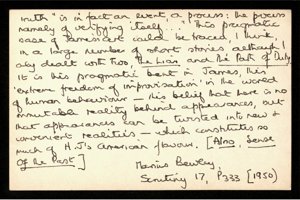 truth "is in fact an event a process: the process
namely of verifying itself..." This pragmatic
base of Jamesian art could be traced, I think,
in a large number of short stories although I
only dealt with two The Liar and the Path of Duty.
It is his pragmatic bent in James, this
'extreme freedom of improvisation' in the world
of human behaviour – his belief that here is no
immutable reality behind appearances, but
that appearances can be twisted into new &
convenient realities – which constitutes so
much of H.J's American flavour. [Also, Sense
of the Past]
Marius Bewley,
Scrutiny 17, P333 [1950]